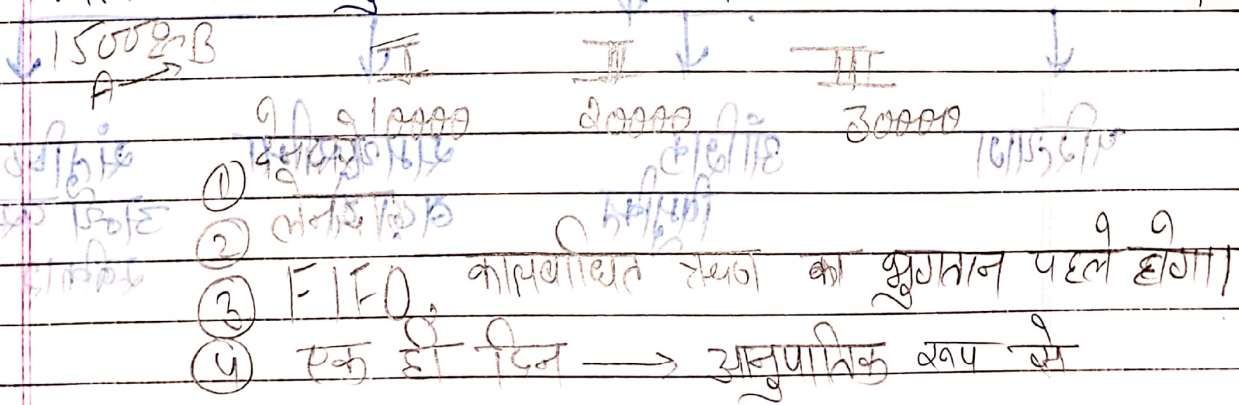 15000 B I II III
A →
10000 20000 30000
① देनदार
② लेनदार
③ FIFO. कालबाधित ऋण का भुगतान पहले होगा।
④ एक ही दिन → आनुपातिक रूप से